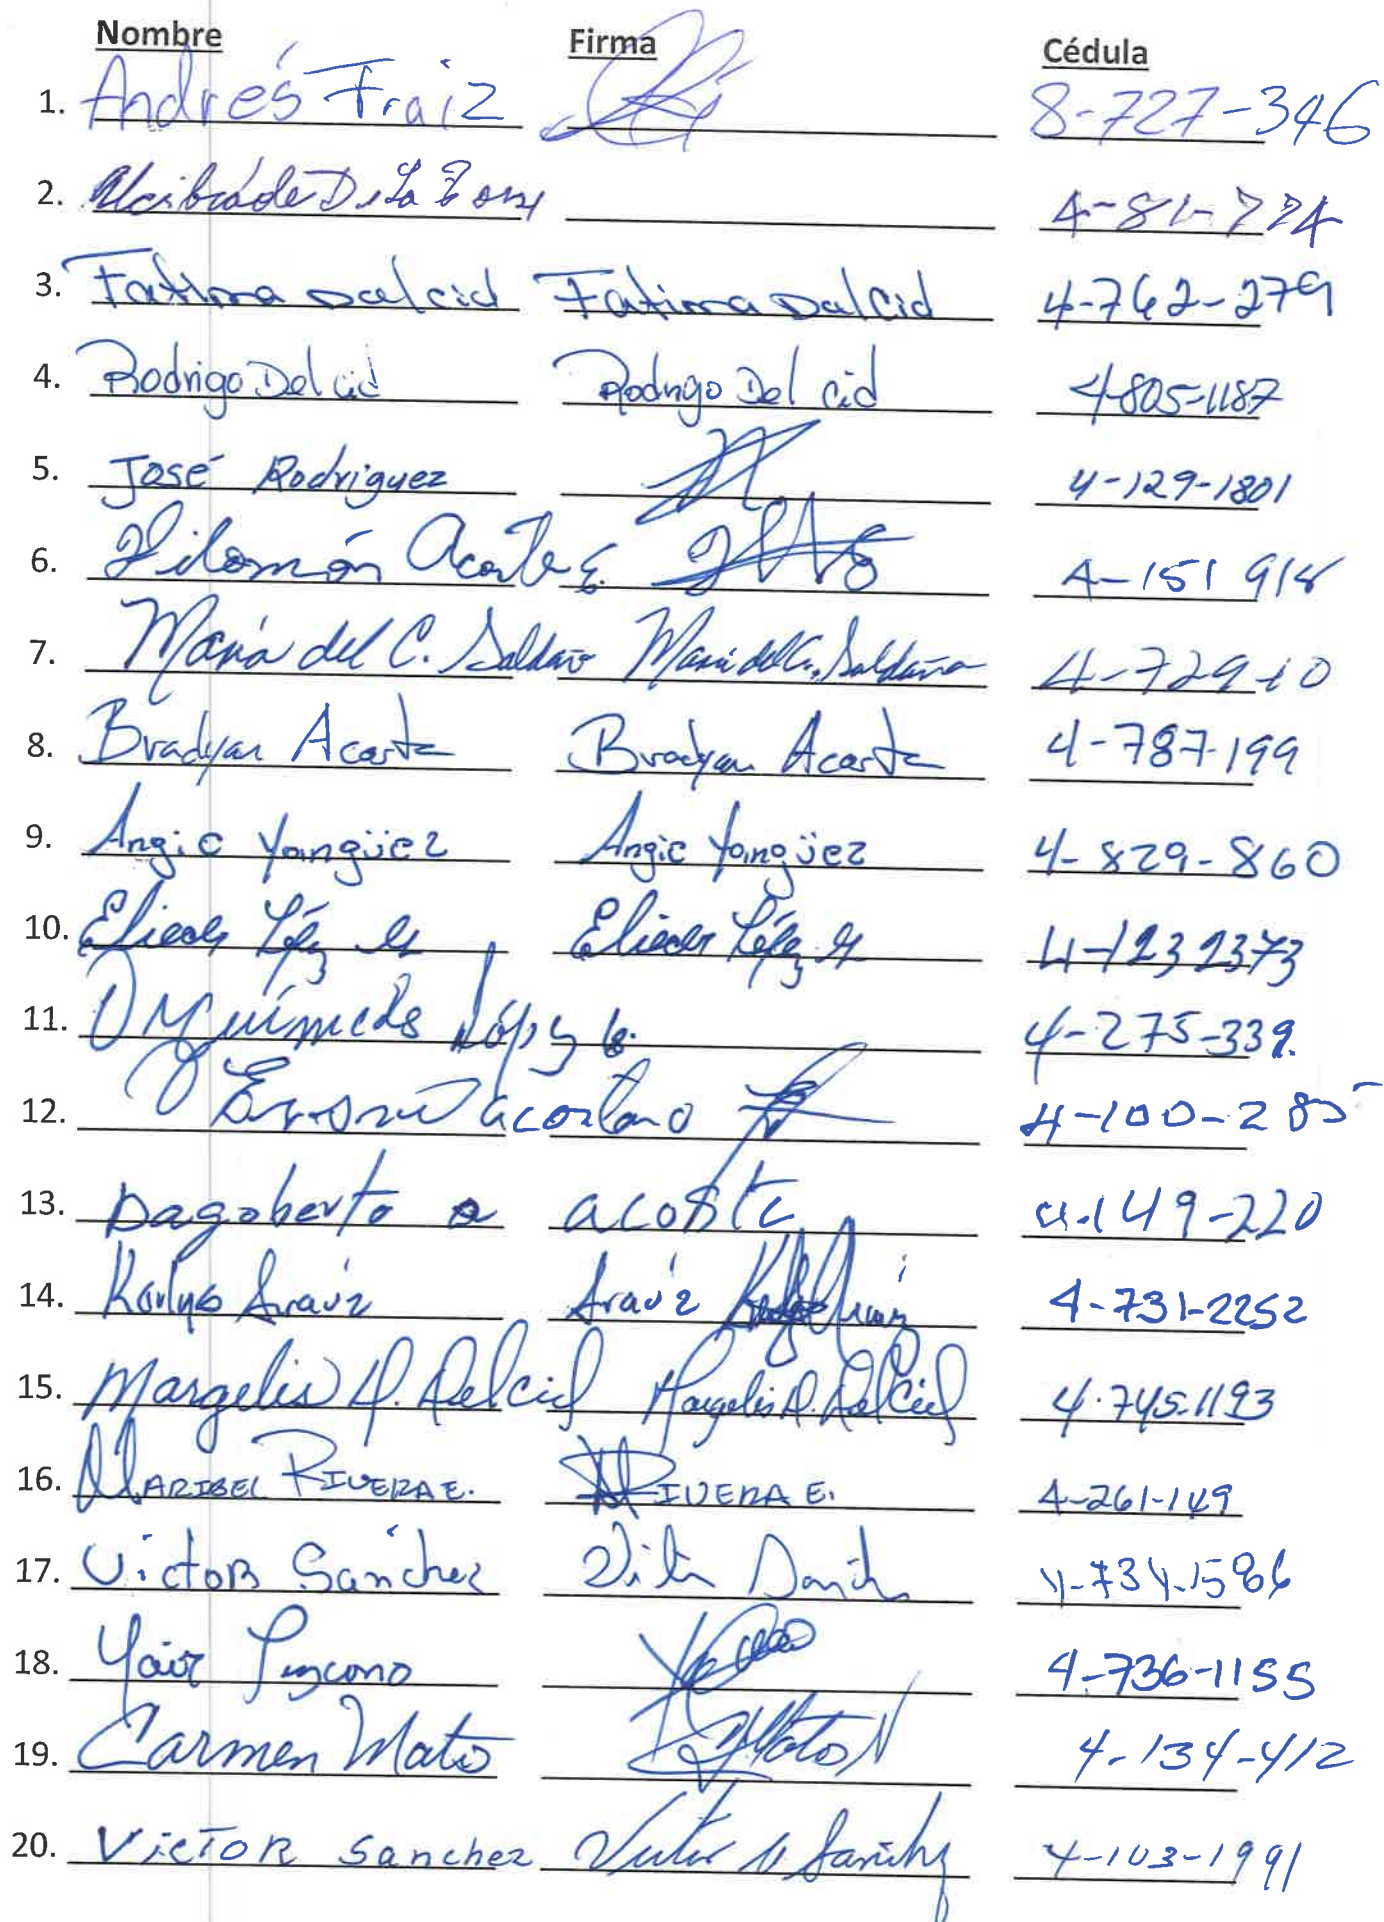 Nombre Firma Cédula
1. Andrés Fraiz 8-727-346
2. Alcibiade De La 4-81-724
3. Fatima Dalcid Fatima Dalcid 4-762-279
4. Rodrigo Del cid Rodrigo Del cid 4-805-1187
5. José Rodriguez 4-129-1801
6. Filomón Acosta E. 4-151 918
7. María del C. Saldaña María del C. Saldaña 4-729-10
8. Bradyan Acosta Bradyan Acosta 4-787-199
9. Angie Yangüez Angie Yangüez 4-829-860
10. Eliecer López Eliecer López 4-123 2373
11. López 4-275-339.
12. 4-100-285
13. Dagoberto a acosta 4-149-220
14. Karlys Araúz Araúz 4-731-2252
15. Margelis D. Delcid Margelis D. Delcid 4-745-1193
16. MARIBEL RIVERA E. RIVERA E. 4-261-149
17. Victor Sánchez 4-734-1586
18. Yair 4-736-1155
19. Carmen Mato Matos N 4-134-412
20. Victor Sanchez Victor Sanchez 4-103-1991